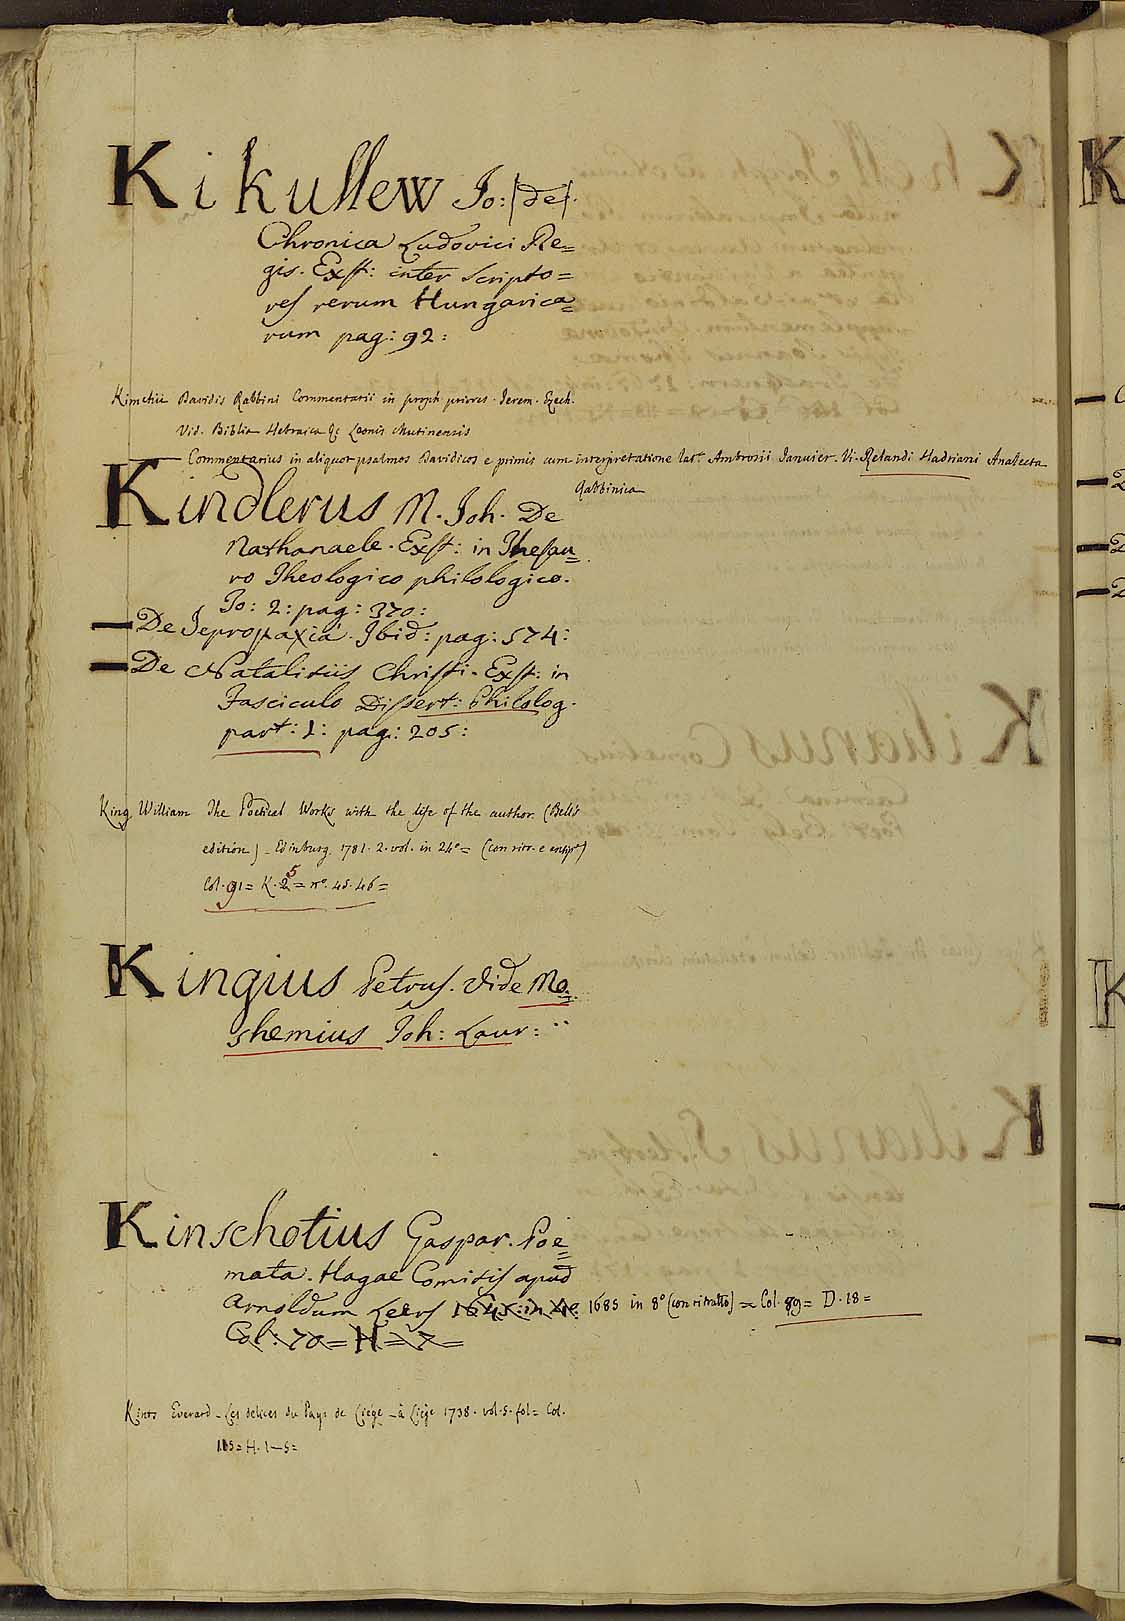 Kikullew Jo: (de).
Chronica Ludovici Re=
gis. Exst: inter Scripto=
res rerum Hungarica=
rum pag: 92:
Kimchii Davidis Rabbini Commentarii in proph. priores. Jerem. Ezech.
Vid. Biblia Hebraica &c Leonis Mutinensis
Commentarius in aliquot psalmos Davidicos e primis cum interpretatione lat.ª Ambrosii Janvier. Vi. Relandi Hadriani Analecta
Rabbinica
Kindlerus M. Joh. De
Nathanaele. Exst: in Thesau=
ro Theologico philologico.
To: 2: pag: 370:
De Ibid: pag: 574:
De Natalitiis Christi. Exst: in
Fasciculo Dissert: Philolog.
part: 1: pag: 205:
King William The Poetical Works with the life of the author (Bell's
edition) – Edinburg. 1781. 2. vol. in 24º = (con ritr. e antip.)
Col. 91 = K. 5 = nº. 45. 46 =
Kingius Petrus. Vide Mo=
shemius Joh: Laur:
Kinschotius Gaspar. Poë=
mata. Hagae Comitis apud
Arnoldum Leers 1645: in 4º: 1685 in 8º (con ritratto) = Col. 89 = D. 18 =
Col: 70 = H = 7 =
Kints Everard – Les delices du Pays de Liége – à Liége 1738. vol. 5. fol = Col.
= H. 1–5 =